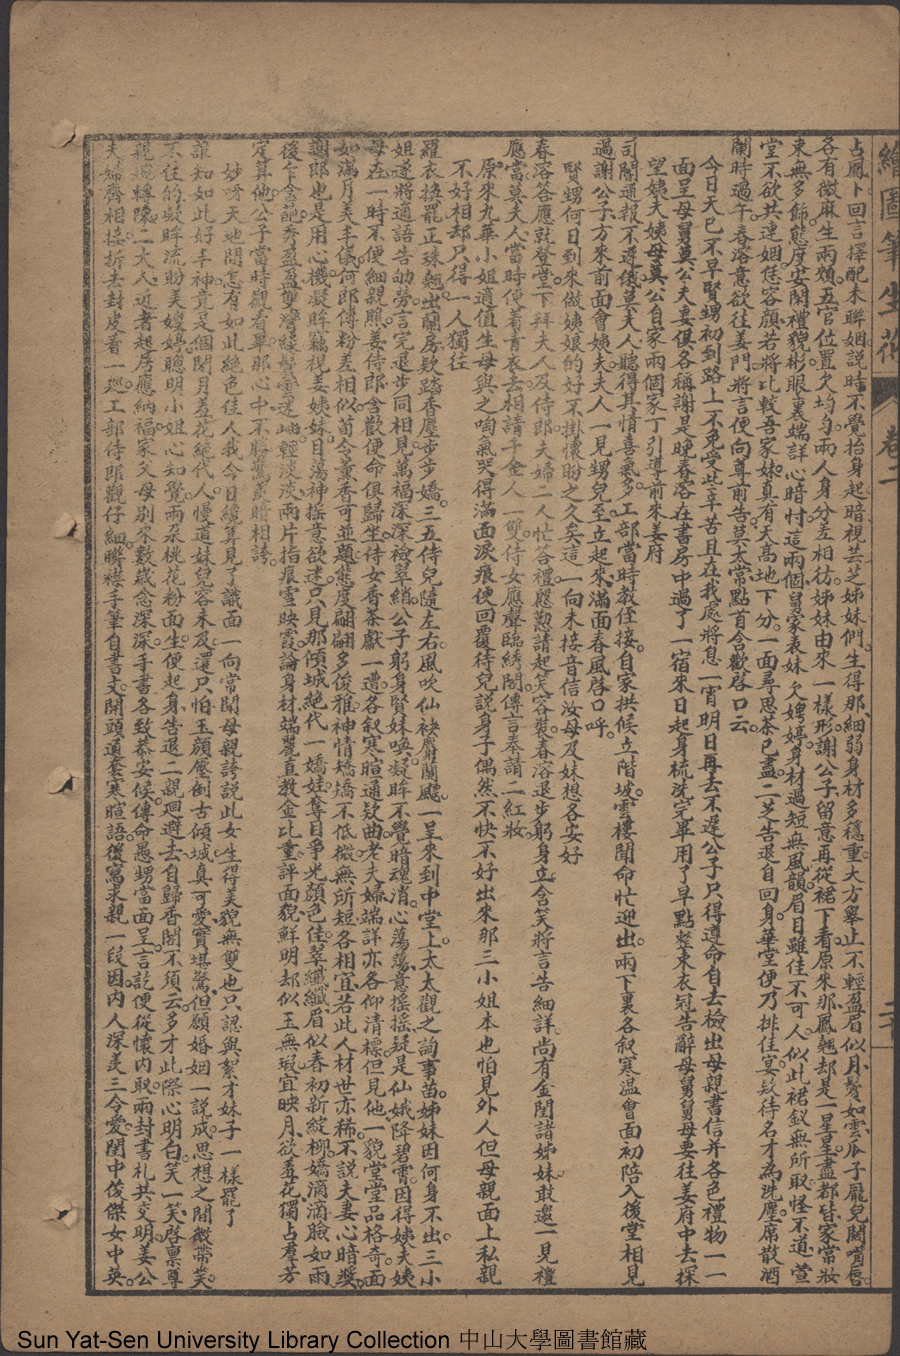 繪圖筆生花 卷二 二十
占鳳卜回言擇配未聯姻説時不覺抬身起暗視芸芝姊妹們生得那細弱身材多穩重大方舉止不輕盈眉似月鬢如雲瓜子龐兒闊嘴唇
各有微麻生兩頰五官位置欠均勻兩人身分差相彷姊妹由來一樣形謝公子留意再從裙下看原來那鳳翹却是一星星盡都皆家常妝
束無多飾態度安閒禮貌彬眼裏端詳心暗忖這兩個舅家表妹欠娉婷身材過短無風韻眉目雖佳不可人似此裙釵無所取怪不道萱
堂不欲共連姻恁容顔若將比較吾家妹真有天高地下分一面尋思茶已盡二芝告退自回身華堂便乃排佳宴欵待名才為洗塵席散酒
闌時過午春溶意欲往姜門將言便向尊前告莫太常點首含歡啓口云
今日天已不早賢甥初到路上不免受些辛苦且在我處將息一宵明日再去不遲公子只得遵命自去檢出母親書信并各色禮物一一
面呈母舅莫公夫妻俱各稱謝是晚春溶在書房中過了一宿來日起身梳洗完畢用了早點整束衣冠告辭母舅舅母要往姜府中去探
望姨夫姨母莫公自家兩個家丁引導前來姜府
司閽通報不遲儀莫夫人聽得其情喜氣多工部當時教侄接自家拱候立階坡雲樓聞命忙迎出兩下裏各叙寒溫會面初陪入後堂相見
過謝公子方來前面會姨夫夫人一見甥兒至立起來滿面春風啓口呼
賢甥何日到來做姨娘的好不掛懷盼之久矣這一向未接音信汝母及妹想各安好
春溶答應就登堂下拜夫人及侍郎夫婦二人忙答禮慇懃請起笑容裝春溶退步躬身立含笑將言告細詳尚有金閨諸姊妹敢邀一見禮
應當莫夫人當時便着青衣去相請千金人一雙侍女應聲臨綉閣傳言奉請二紅妝
原來九華小姐適值生母與之啕氣哭得滿面淚痕便回覆待兒説身子偶然不快不好出來那三小姐本也怕見外人但母親面上私親
不好相却只得一人獨往
羅衣換罷正珠翹出蘭房欵踏香塵步步嬌三五侍兒隨左右風吹仙袂麝蘭飄一呈來到中堂上太太觀之詢事苗姊妹因何身不出三小
姐遂將適語告劬勞言完退步同相見萬福深深襝翠綃公子躬身賢妹喚凝眸不覺暗魂消心蕩蕩意搖搖疑是仙娥降碧霄因得姨夫姨
母在一時不便細親照姜侍郎含歡便命俱歸坐侍女香茶獻一遭各叙寒暄通欵曲老夫婦端詳亦各仰清標但見他一貌堂堂品格奇面
如滿月美丰儀何郎傅粉差相似荀令薰香可並題態度翩翩多俊雅神情矯矯不低微無所短各相宜若此人材世亦稀不説夫妻心暗奬
謝郎也是用心機凝眸竊視姜姨妹目蕩神搖意欲迷只見那傾城絶代一嬌娃奪目爭光顔色佳翠纖纖眉似春初新綻柳嬌滴滴臉如雨
後乍含葩秀盈盈雙灣綠鬢雲迷岫輕淡淡兩片指痕雪映霞論身材端麗直教金比重評面貌鮮明却似玉無瑕宜映月欲羞花獨占羣芳
定算他公子當時觀看畢那心中不勝驚羨暗相誇
妙呀天地間怎有如此絶色佳人我今日纔算見了識面一向常聞母親誇説此女生得美貌無雙也只認與絮才妹子一樣罷了
誰知如此好手神竟是個閉月羞花絶代人慢道妹兒容未及還只怕玉顔壓倒古傾城真可愛實堪驚但願婚姻一説成思想之間微帶笑
不住的凝眸流盼美嬪婷聰明小姐心知覺兩朶桃花粉面生便起身告退二親迴避去自歸香閣不須云多才此際心明白笑一笑啓稟尊
親婉轉陳二大人近者起居應納福家父母别來數載念深深手書各致恭安候傳命愚甥當面呈言訖便從懷內取兩封書札共交明姜公
夫婦齊相接拆去封皮看一巡工部侍郎觀仔細聨襟手筆自書丈開頭通套寒暄語後寫求親一段因內人深羨三令愛閨中俊傑女中英
Sun Yat-Sen University Library Collection 中山大學圖書館藏